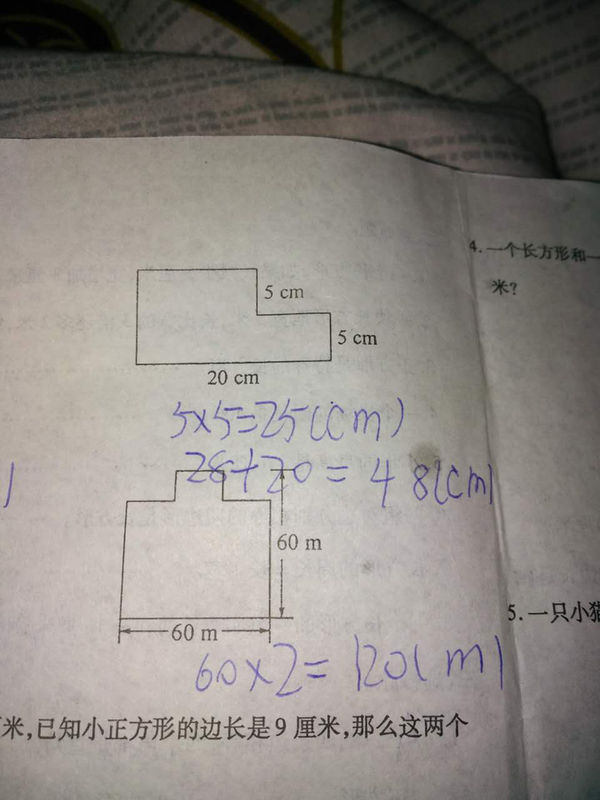 4. 一个长方形和一
米?
5 cm
5 cm
20 cm
5×5=25(cm)
28+20=48(cm)
60 m
60 m
5. 一只小猫
60×2=120(m)
米,已知小正方形的边长是9厘米,那么这两个